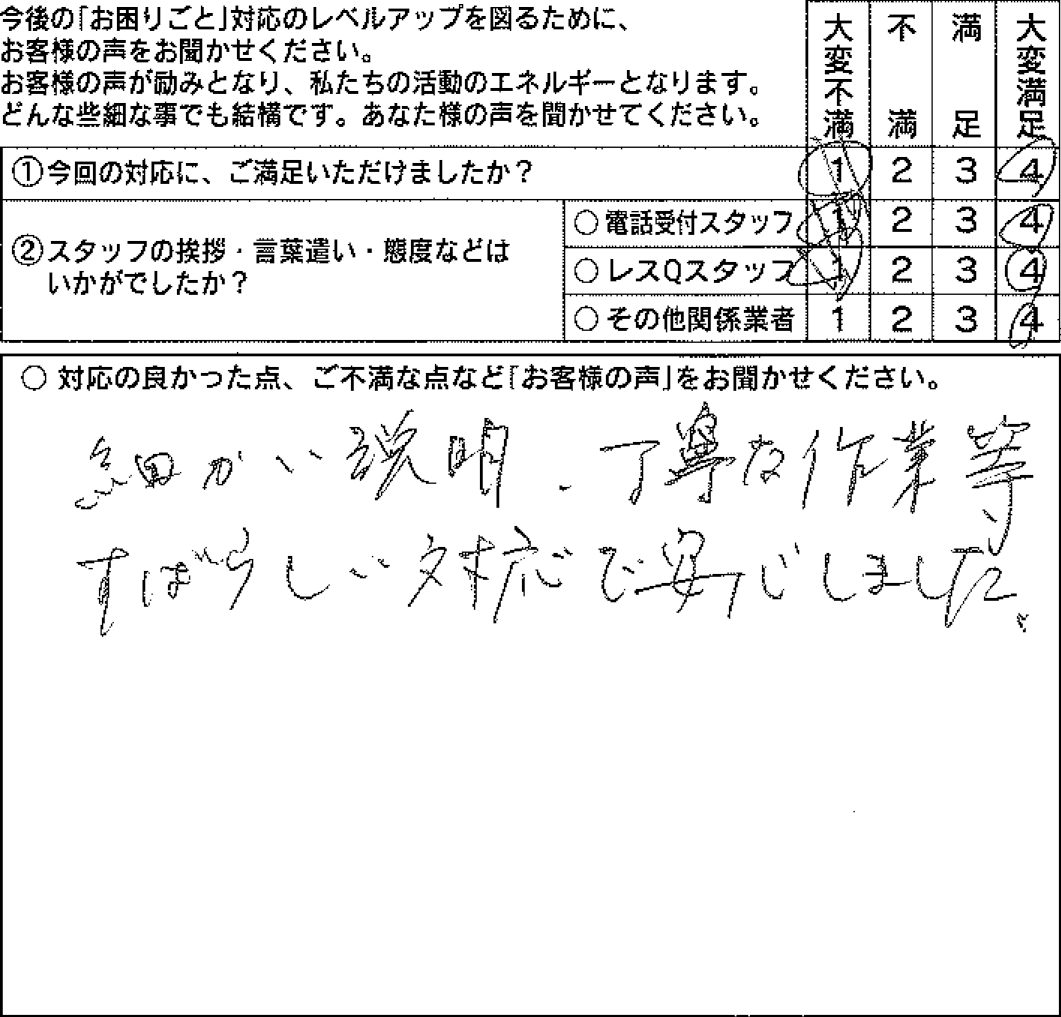 今後の「お困りごと」対応のレベルアップを図るために、
お客様の声をお聞かせください。
お客様の声が励みとなり、私たちの活動のエネルギーとなります。
どんな些細な事でも結構です。あなた様の声を聞かせてください。
大変不満 不満 満足 大変満足
①今回の対応に、ご満足いただけましたか? 1 2 3 4
②スタッフの挨拶・言葉遣い・態度などは
いかがでしたか?
○電話受付スタッフ 1 2 3 4
○レスQスタッフ 1 2 3 4
○その他関係業者 1 2 3 4
○対応の良かった点、ご不満な点など「お客様の声」をお聞かせください。
細かい説明、丁寧な作業等
すばらしい対応で安心しました。